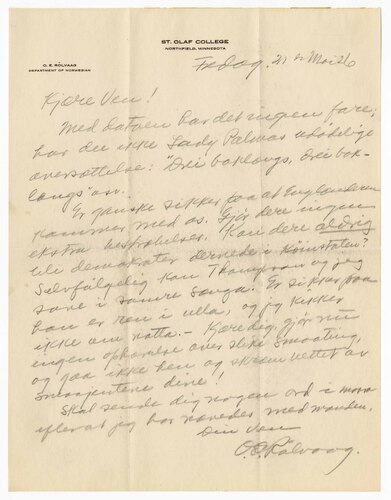 ST. OLAF COLLEGE
NORTHFIELD, MINNESOTA
O. E. ROLVAAG
DEPARTMENT OF NORWEGIAN
Fredag, 21 Mai 26
Kjære Ven!
Med datoen har det ingen fare;
har du ikke Lady Palmas udødelige
oversættelse: "Drei baklongs, drei bak-
longs" osv.
Er ganske sikker paa at Englænderen
kommer med os. Gjør dere ingen
ekstra bestræbelser. Kan dere aldrig
bli demokrater dernede i
Selvfølgelig kan Thompson og jeg
sove i samme senga. Er sikker paa
han er ren i ulla, og jeg kikker
ikke om natta. – Kjære deg, gjør nu
ingen ophævelse over slike smaating,
og gaa ikke hen og skræm vettet av
dine!
Skal sende dig nogen ord i morgen
efterat jeg har med manden.
Din ven
O. E. Rölvaag.